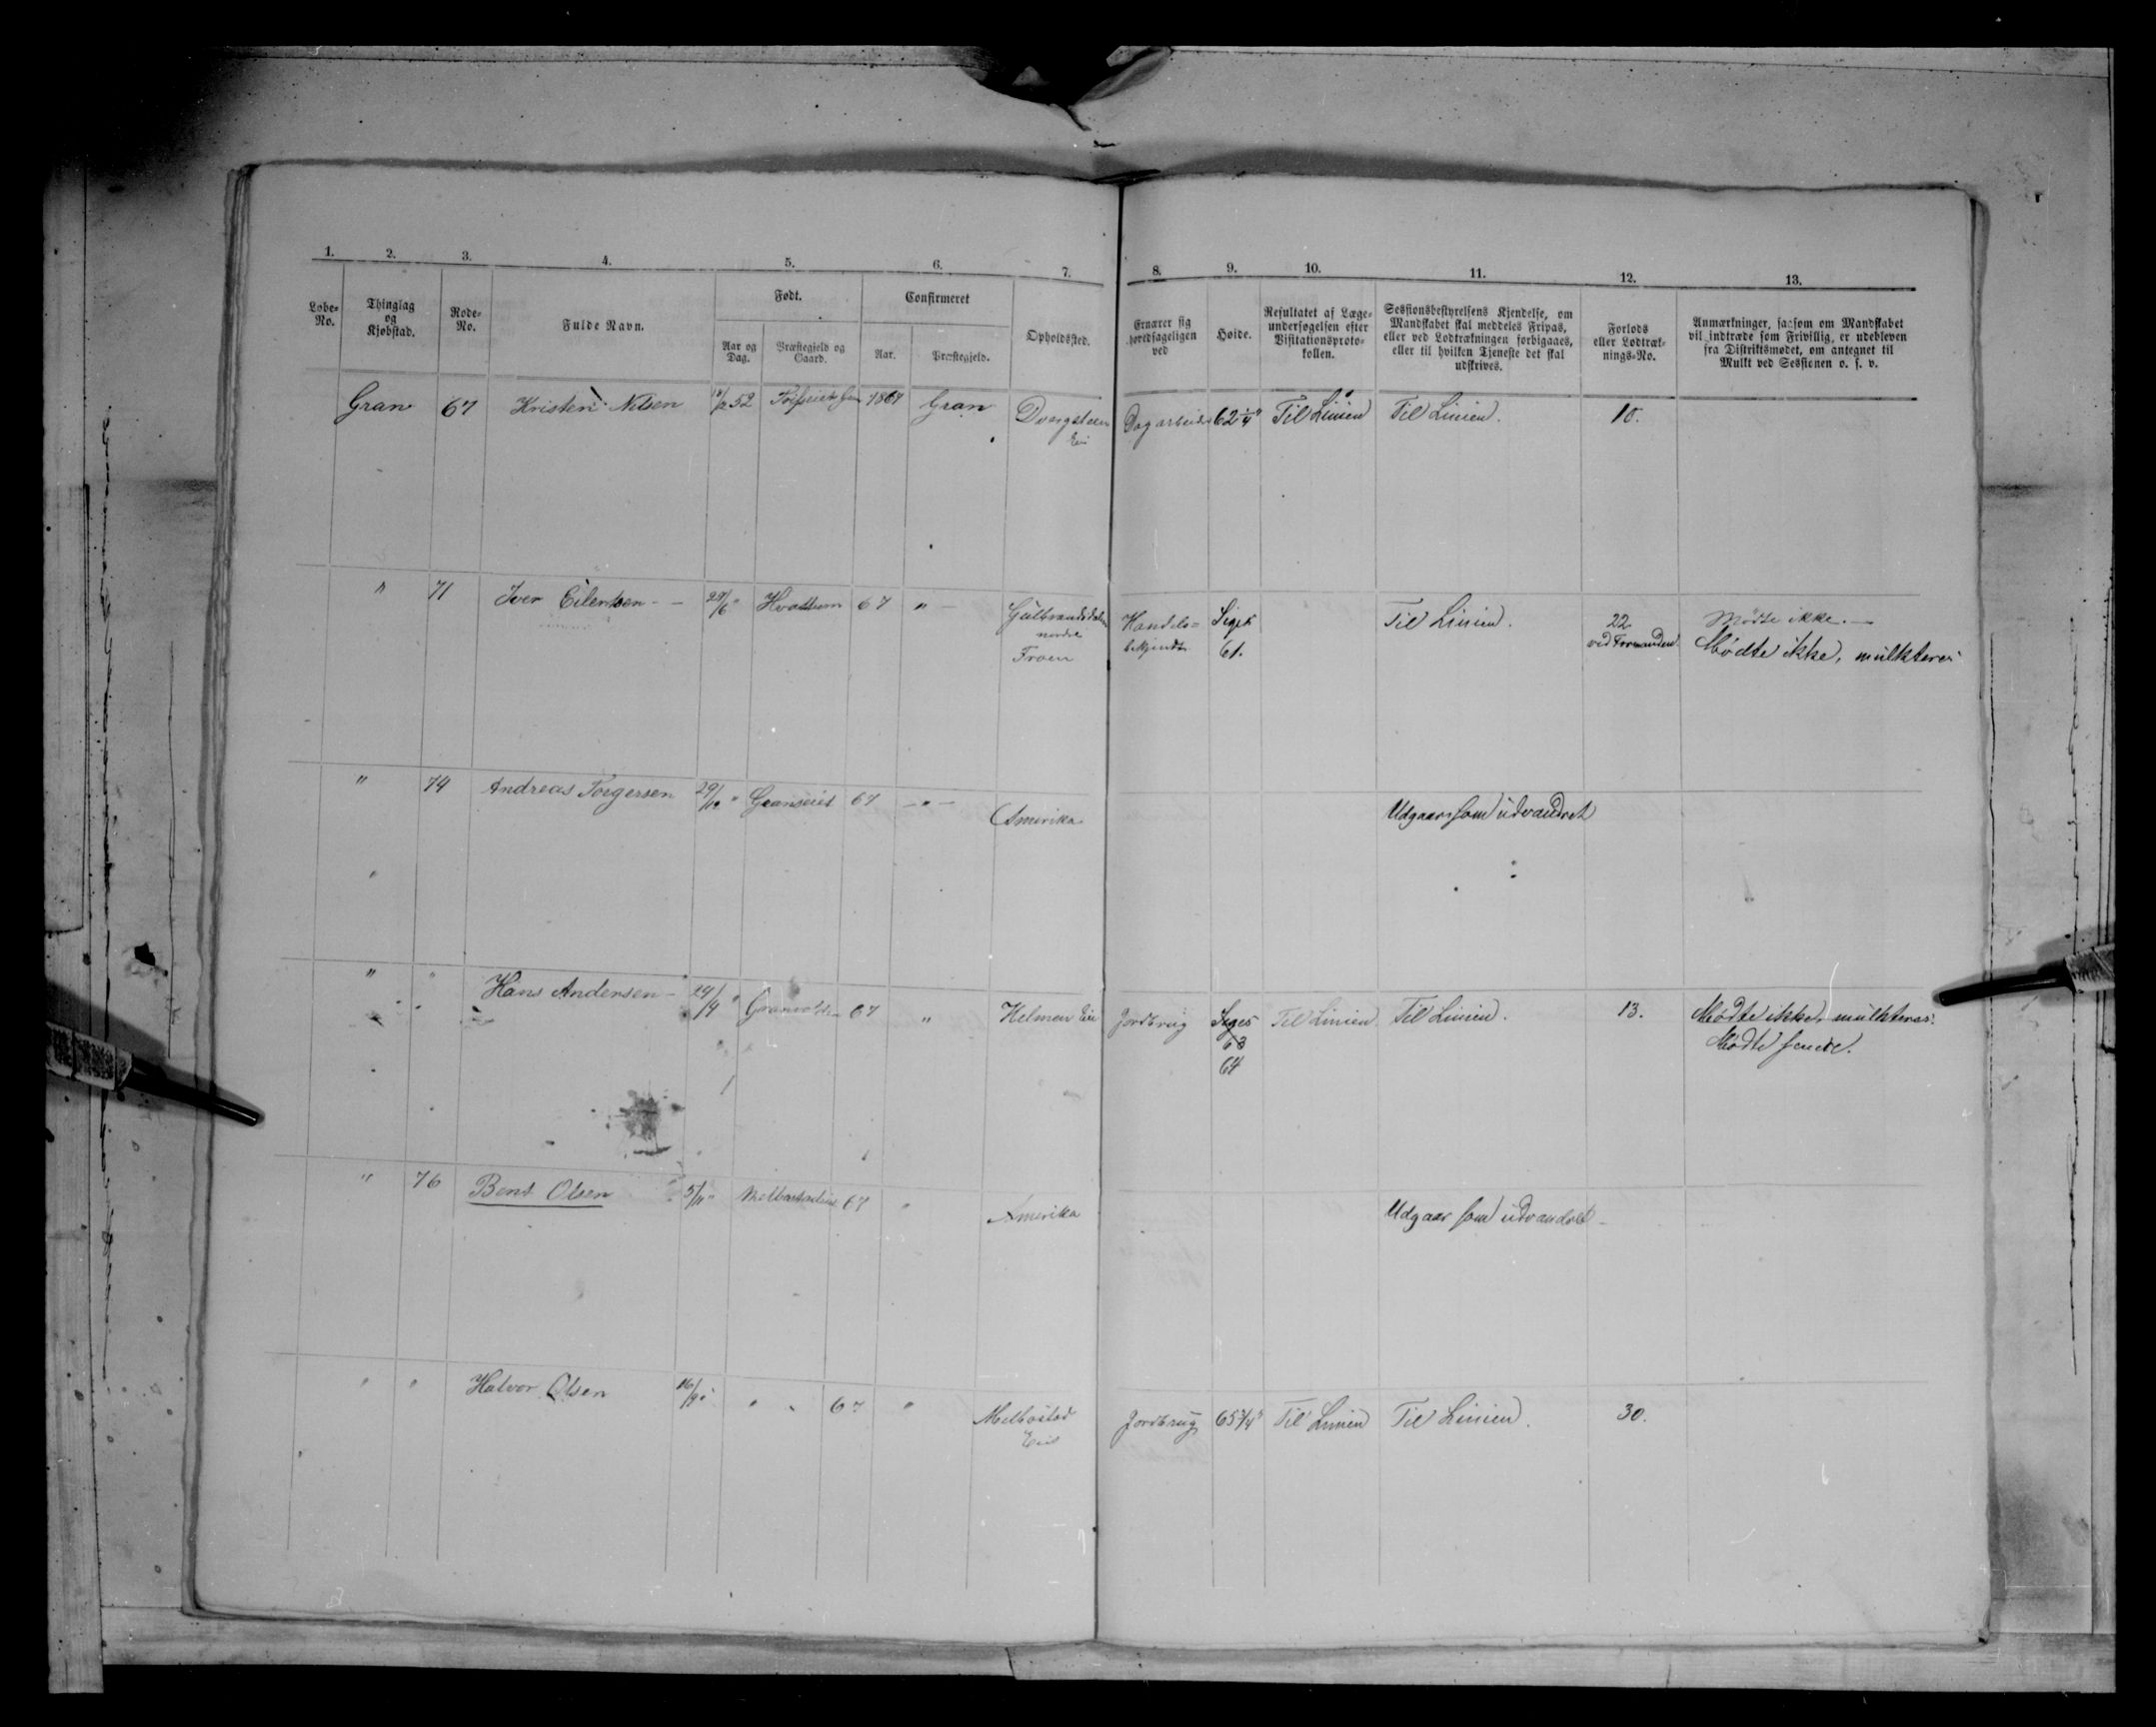 1. 2. 3. 4. 5. 6. 7. 8. 9. 10. 11. 12. 13.
Løbe-No. Thinglag og Kjøbstad. Rode-No. Fulde Navn. Født. Aar og Dag. Præstegjeld og Gaard. Confirmeret Aar. Præstegjeld. Opholdssted. Ernærer sig hovedsageligen ved Høide. Resultatet af Læge-undersøgelsen efter Visitationsproto-kollen. Sessionsbestyrelsens Kjendelse, om Mandskabet skal meddeles Fripas, eller ved Lodtrækningen forbigaaes, eller til hvilken Tjeneste det skal udskrives. Forlods eller Lodtræk-nings-No. Anmærkninger, saasom om Mandskabet vil indtræde som Frivillig, er udebleven fra Distriktsmødet, om antegnet til Mulkt ved Sessionen o. s. v.
Gran 67 Kristen Nilsen 52 1867 Gran Dvergsteen Dagarbeide 62 1/4" Til Linien Til Linien. 10.
Eie
" 71 Iver Eilertsen - - 29/6 " Hvattum 67 " - Gulbrandsdalen Handels= Siges Til Linien. 22 Mødte ikke. -
nordre betjendt 61. ved Formanden Mødte ikke, mulkteres
Froen
" 74 Andreas Torgersen 29/10 " Granseiet 67 - " - Amerika Udgaar som udvandret
" " Hans Andersen - 24/4 " Granvolden 67 " Helmen Eie Jordbrug Siges Til Linien Til Linien. 13. Mødte ikke, mulkteres.
63 Mødte senere.
64
" 76 Bent Olsen 5/11 " 67 " Amerika Udgaar som udvandret -
" " Halvor Olsen 16/9 " " " 67 " Melbostad Jordbrug 65 3/4" Til Linien Til Linien. 30.
Eie